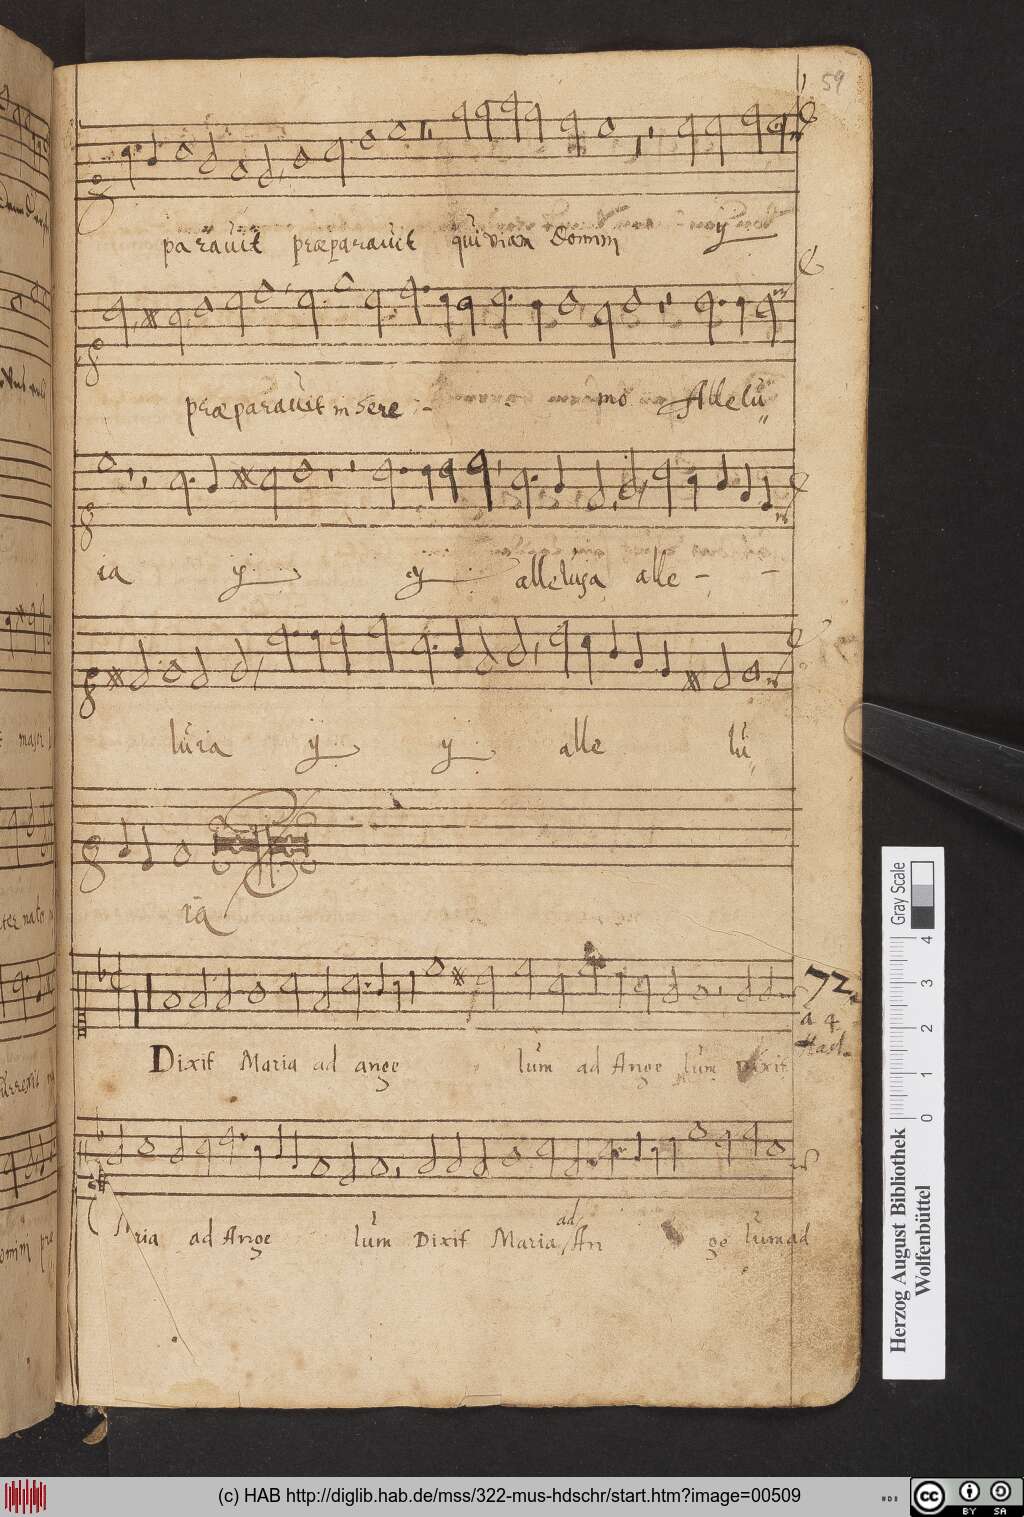 59
parauit præparauit qui viam Domini y
præparauit in sere - mo Allelu
ia y y alleluja alle - -
luia y y alle lu
ia
72.
à 4
Dixit Maria ad ange lum ad Ange lum Dixit
ria ad Ange lum Dixit Maria ad An ge lum ad
Gray Scale
0 1 2 3 4
Herzog August Bibliothek
Wolfenbüttel
(c) HAB http://diglib.hab.de/mss/322-mus-hdschr/start.htm?image=00509
cc BY SA